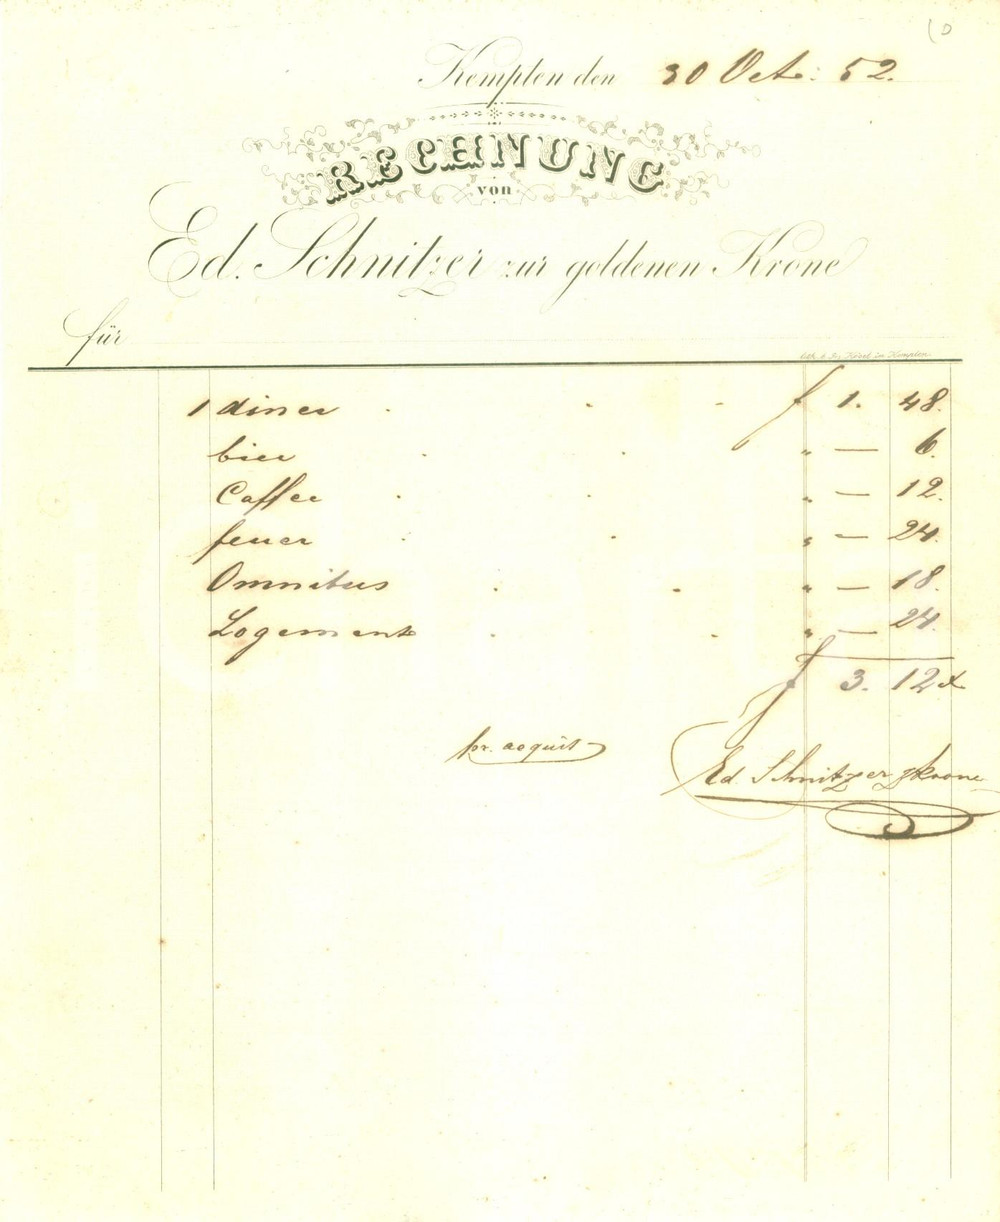 Kempten den 30 Oct. 52.
RECHNUNG
von
Ed. Schnitzer zur goldenen Krone
für
Lith. v. Kösel in Kempten.
1 diner f 1. 48.
bier " — 6.
Caffee " — 12.
feuer " — 24.
Omnibus " — 18.
Logement " — 24.
f 3. 12 x
pr. acquit
Ed Schnitzer z Krone